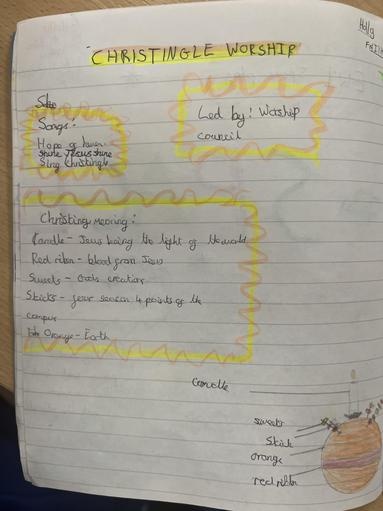 CHRISTINGLE WORSHIP
Holly
Songs:
Hope of heaven
Shine Jesus shine
Sing Christingle
Led by: Worship
council
Christingle meaning:
Candle - Jesus being the light of the world
Red ribon - blood from Jesus
Sweets - Gods creation
Sticks - four season 4 points of the
compus
Orange - Earth
Candle
sweets
Stick
orange
red ribbon